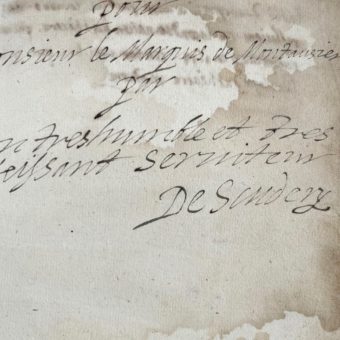 pour
onsieur le Marquis de Montausier
par
on tres humble et tres
eissant seruiteur
De Scudery